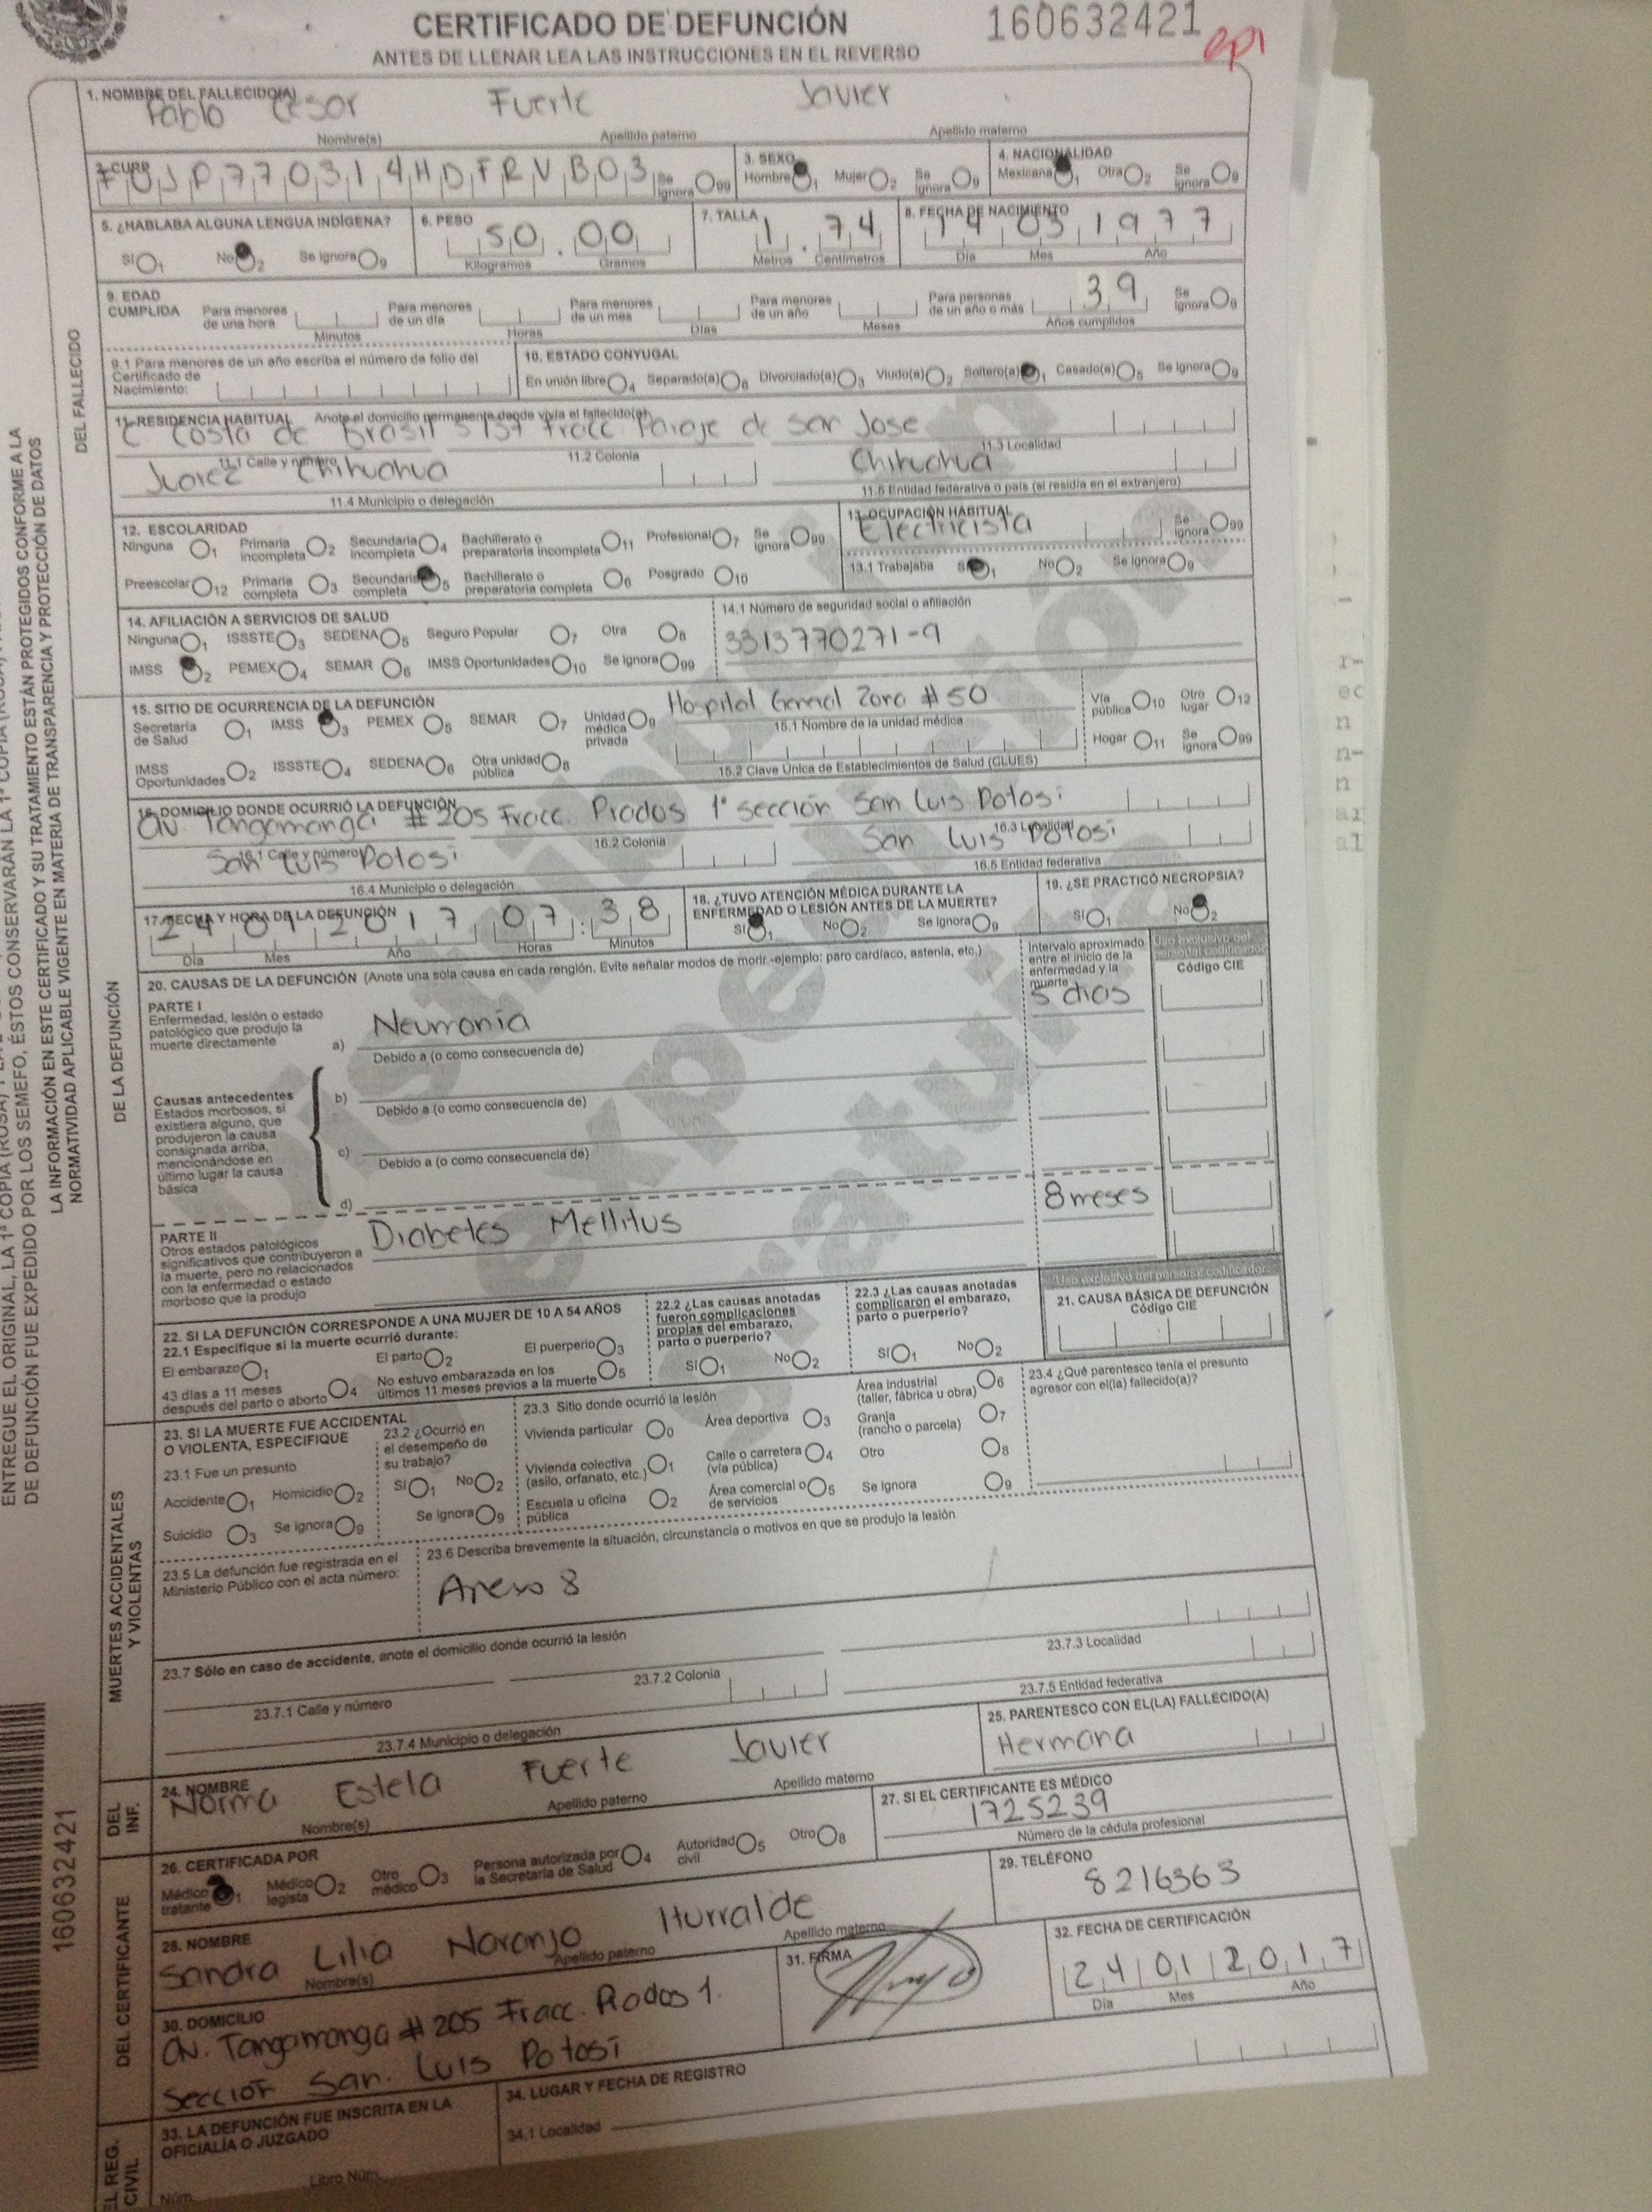 CERTIFICADO DE DEFUNCIÓN
160632421
epi
ANTES DE LLENAR LEA LAS INSTRUCCIONES EN EL REVERSO
DEL FALLECIDO
1. NOMBRE DEL FALLECIDO(A)
Pablo Cesar Fuerte Javier
Nombre(s) Apellido paterno Apellido materno
2. CURP FUJP770314HDFRVB03 Se ignora 99
3. SEXO Hombre 1 Mujer 2 Se ignora 9
4. NACIONALIDAD Mexicana 1 Otra 2 Se ignora 9
5. ¿HABLABA ALGUNA LENGUA INDÍGENA?
Sí 1 No 2 Se ignora 9
6. PESO 50.00
Kilogramos Gramos
7. TALLA 1.74
Metros Centímetros
8. FECHA DE NACIMIENTO 14 03 1977
Día Mes Año
9. EDAD CUMPLIDA
Para menores de una hora Minutos
Para menores de un día Horas
Para menores de un mes Días
Para menores de un año Meses
Para personas de un año o más 39 Años cumplidos
Se ignora 9
9.1 Para menores de un año escriba el número de folio del Certificado de Nacimiento:
10. ESTADO CONYUGAL
En unión libre 4 Separado(a) 6 Divorciado(a) 3 Viudo(a) 2 Soltero(a) 1 Casado(a) 5 Se ignora 9
11. RESIDENCIA HABITUAL Anote el domicilio permanente donde vivía el fallecido(a)
C Costa de Brasil Fracc Paraje de San Jose
11.1 Calle y número 11.2 Colonia 11.3 Localidad
Juarez Chihuahua Chihuahua
11.4 Municipio o delegación 11.5 Entidad federativa o país (si residía en el extranjero)
12. ESCOLARIDAD
Ninguna 1 Primaria incompleta 2 Secundaria incompleta 4 Bachillerato o preparatoria incompleta 11 Profesional 7 Se ignora 99
Preescolar 12 Primaria completa 3 Secundaria completa 5 Bachillerato o preparatoria completa 6 Posgrado 10
13. OCUPACIÓN HABITUAL
Electricista
Se ignora 99
13.1 Trabajaba Sí 1 No 2 Se ignora 9
14. AFILIACIÓN A SERVICIOS DE SALUD
Ninguna 1 ISSSTE 3 SEDENA 5 Seguro Popular 7 Otra 8
IMSS 2 PEMEX 4 SEMAR 6 IMSS Oportunidades 10 Se ignora 99
14.1 Número de seguridad social o afiliación
3313770271-9
DE LA DEFUNCIÓN
15. SITIO DE OCURRENCIA DE LA DEFUNCIÓN
Secretaría de Salud 1 IMSS 3 PEMEX 5 SEMAR 7 Unidad médica privada 9
IMSS Oportunidades 2 ISSSTE 4 SEDENA 6 Otra unidad pública 8
Hospital General Zona #50
15.1 Nombre de la unidad médica
15.2 Clave Única de Establecimientos de Salud (CLUES)
Vía pública 10 Otro lugar 12
Hogar 11 Se ignora 99
16. DOMICILIO DONDE OCURRIÓ LA DEFUNCIÓN
av. Tangamanga #205 Fracc. Prados 1ª sección San Luis Potosi
16.1 Calle y número 16.2 Colonia 16.3 Localidad
San Luis Potosi San Luis Potosi
16.4 Municipio o delegación 16.5 Entidad federativa
17. FECHA Y HORA DE LA DEFUNCIÓN
24 01 2017 07:38
Día Mes Año Horas Minutos
18. ¿TUVO ATENCIÓN MÉDICA DURANTE LA ENFERMEDAD O LESIÓN ANTES DE LA MUERTE?
Sí 1 No 2 Se ignora 9
19. ¿SE PRACTICÓ NECROPSIA?
Sí 1 No 2
20. CAUSAS DE LA DEFUNCIÓN (Anote una sola causa en cada renglón. Evite señalar modos de morir -ejemplo: paro cardiaco, astenia, etc.)
Intervalo aproximado entre el inicio de la enfermedad y la muerte
Código CIE
PARTE I
Enfermedad, lesión o estado patológico que produjo la muerte directamente
a) Neumonia 5 dias
Debido a (o como consecuencia de)
Causas antecedentes
Estados morbosos, si existiera alguno, que produjeron la causa consignada arriba, mencionándose en último lugar la causa básica
b)
Debido a (o como consecuencia de)
c)
Debido a (o como consecuencia de)
d)
PARTE II
Otros estados patológicos significativos que contribuyeron a la muerte, pero no relacionados con la enfermedad o estado morboso que la produjo
Diabetes Mellitus 8 meses
22. SI LA DEFUNCIÓN CORRESPONDE A UNA MUJER DE 10 A 54 AÑOS
22.1 Especifique si la muerte ocurrió durante:
El embarazo 1 El parto 2 El puerperio 3
43 días a 11 meses después del parto o aborto 4 No estuvo embarazada en los últimos 11 meses previos a la muerte 5
22.2 ¿Las causas anotadas fueron complicaciones propias del embarazo, parto o puerperio?
Sí 1 No 2
22.3 ¿Las causas anotadas complicaron el embarazo, parto o puerperio?
Sí 1 No 2
Uso exclusivo del personal codificador
21. CAUSA BÁSICA DE DEFUNCIÓN
Código CIE
MUERTES ACCIDENTALES Y VIOLENTAS
23. SI LA MUERTE FUE ACCIDENTAL O VIOLENTA, ESPECIFIQUE
23.1 Fue un presunto
Accidente 1 Homicidio 2
Suicidio 3 Se ignora 9
23.2 ¿Ocurrió en el desempeño de su trabajo?
Sí 1 No 2
Se ignora 9
23.3 Sitio donde ocurrió la lesión
Vivienda particular 0 Área deportiva 3 Área industrial (taller, fábrica u obra) 6
Vivienda colectiva (asilo, orfanato, etc.) 1 Calle o carretera (vía pública) 4 Granja (rancho o parcela) 7
Escuela u oficina pública 2 Área comercial o de servicios 5 Otro 8
Se ignora 9
23.4 ¿Qué parentesco tenía el presunto agresor con el(la) fallecido(a)?
23.5 La defunción fue registrada en el Ministerio Público con el acta número:
23.6 Describa brevemente la situación, circunstancia o motivos en que se produjo la lesión
Anexo 8
23.7 Sólo en caso de accidente, anote el domicilio donde ocurrió la lesión
23.7.1 Calle y número 23.7.2 Colonia 23.7.3 Localidad
23.7.4 Municipio o delegación 23.7.5 Entidad federativa
DEL INF.
24. NOMBRE
Norma Estela Fuerte Javier
Nombre(s) Apellido paterno Apellido materno
25. PARENTESCO CON EL(LA) FALLECIDO(A)
Hermana
DEL CERTIFICANTE
26. CERTIFICADA POR
Médico tratante 1 Médico legista 2 Otro médico 3 Persona autorizada por la Secretaría de Salud 4 Autoridad civil 5 Otro 8
27. SI EL CERTIFICANTE ES MÉDICO
1725239
Número de la cédula profesional
28. NOMBRE
Sandra Lilia Naranjo Iturralde
Nombre(s) Apellido paterno Apellido materno
29. TELÉFONO
8216363
30. DOMICILIO
av. Tangamanga #205 Fracc. Prados 1.
Sección San. Luis Potosí
31. FIRMA
32. FECHA DE CERTIFICACIÓN
24 01 2017
Día Mes Año
DEL REG. CIVIL
33. LA DEFUNCIÓN FUE INSCRITA EN LA OFICIALÍA O JUZGADO
Núm. Libro Núm.
34. LUGAR Y FECHA DE REGISTRO
34.1 Localidad
160632421
DE DEFUNCIÓN FUE EXPEDIDO POR LOS SEMEFO, ÉSTOS CONSERVARÁN LA 1ª COPIA
LA INFORMACIÓN EN ESTE CERTIFICADO Y SU TRATAMIENTO ESTÁN PROTEGIDOS CONFORME A LA
NORMATIVIDAD APLICABLE VIGENTE EN MATERIA DE TRANSPARENCIA Y PROTECCIÓN DE DATOS